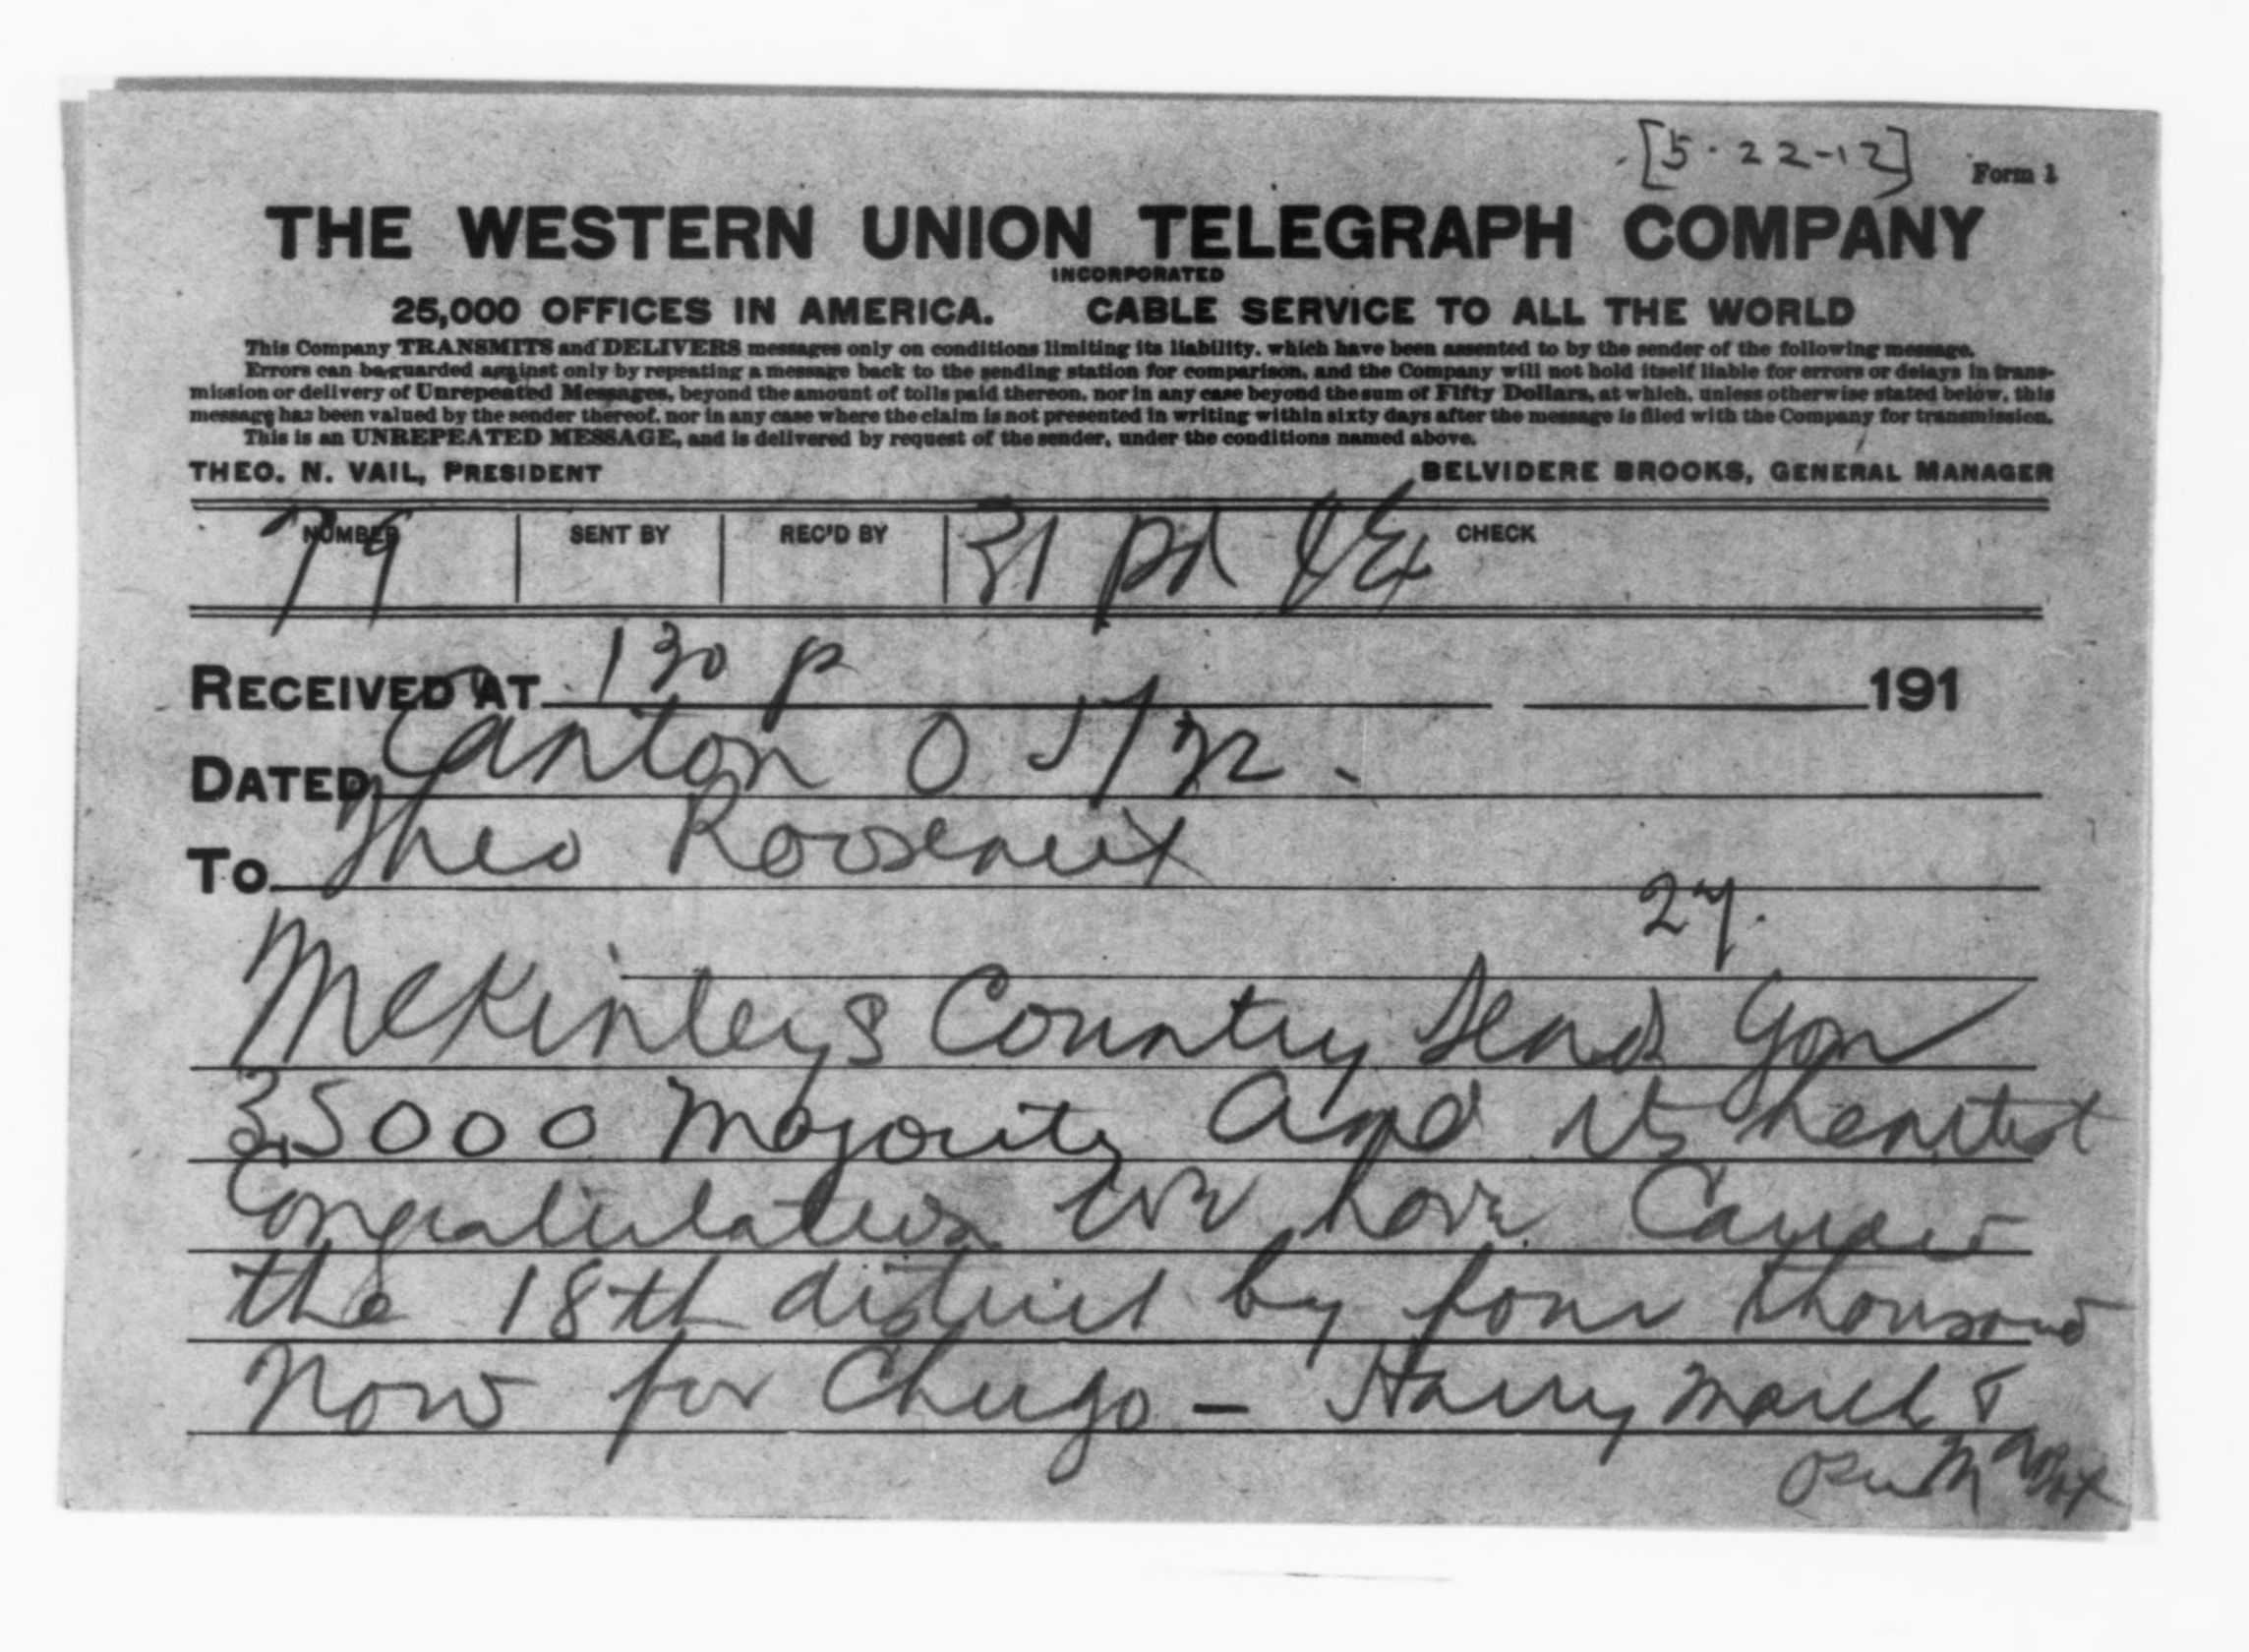 [5-22-12] Form 1
THE WESTERN UNION TELEGRAPH COMPANY
INCORPORATED
25,000 OFFICES IN AMERICA. CABLE SERVICE TO ALL THE WORLD
This Company TRANSMITS and DELIVERS messages only on conditions limiting its liability, which have been assented to by the sender of the following message.
Errors can be guarded against only by repeating a message back to the sending station for comparison, and the Company will not hold itself liable for errors or delays in trans-
mission or delivery of Unrepeated Messages, beyond the amount of tolls paid thereon, nor in any case beyond the sum of Fifty Dollars, at which, unless otherwise stated below, this
message has been valued by the sender thereof, nor in any case where the claim is not presented in writing within sixty days after the message is filed with the Company for transmission.
This is an UNREPEATED MESSAGE, and is delivered by request of the sender, under the conditions named above.
THEO. N. VAIL, PRESIDENT BELVIDERE BROOKS, GENERAL MANAGER
NUMBER SENT BY REC'D BY CHECK
79 31 pd
RECEIVED AT 130 p 191
DATED Canton O 5/22
To Theo Roosevelt
27.
McKinleys Country Send You
35000 Majority and its heartiest
Congratulation We have Carried
the 18th district by four thousand
Now for Chicago - Harry March &